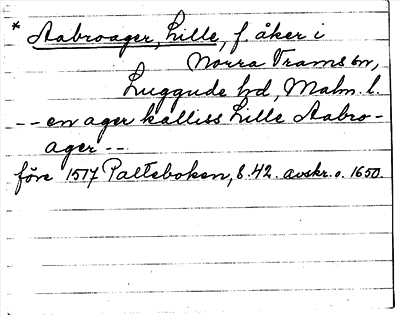 * Aabroager, Lille, f. åker i
Norra Trams sn,
Luggude hd, Malm. l.
-- en ager kalliss Lille Aabro-
ager --
före 1517 Palteboken, s. 42. avskr. o. 1650.